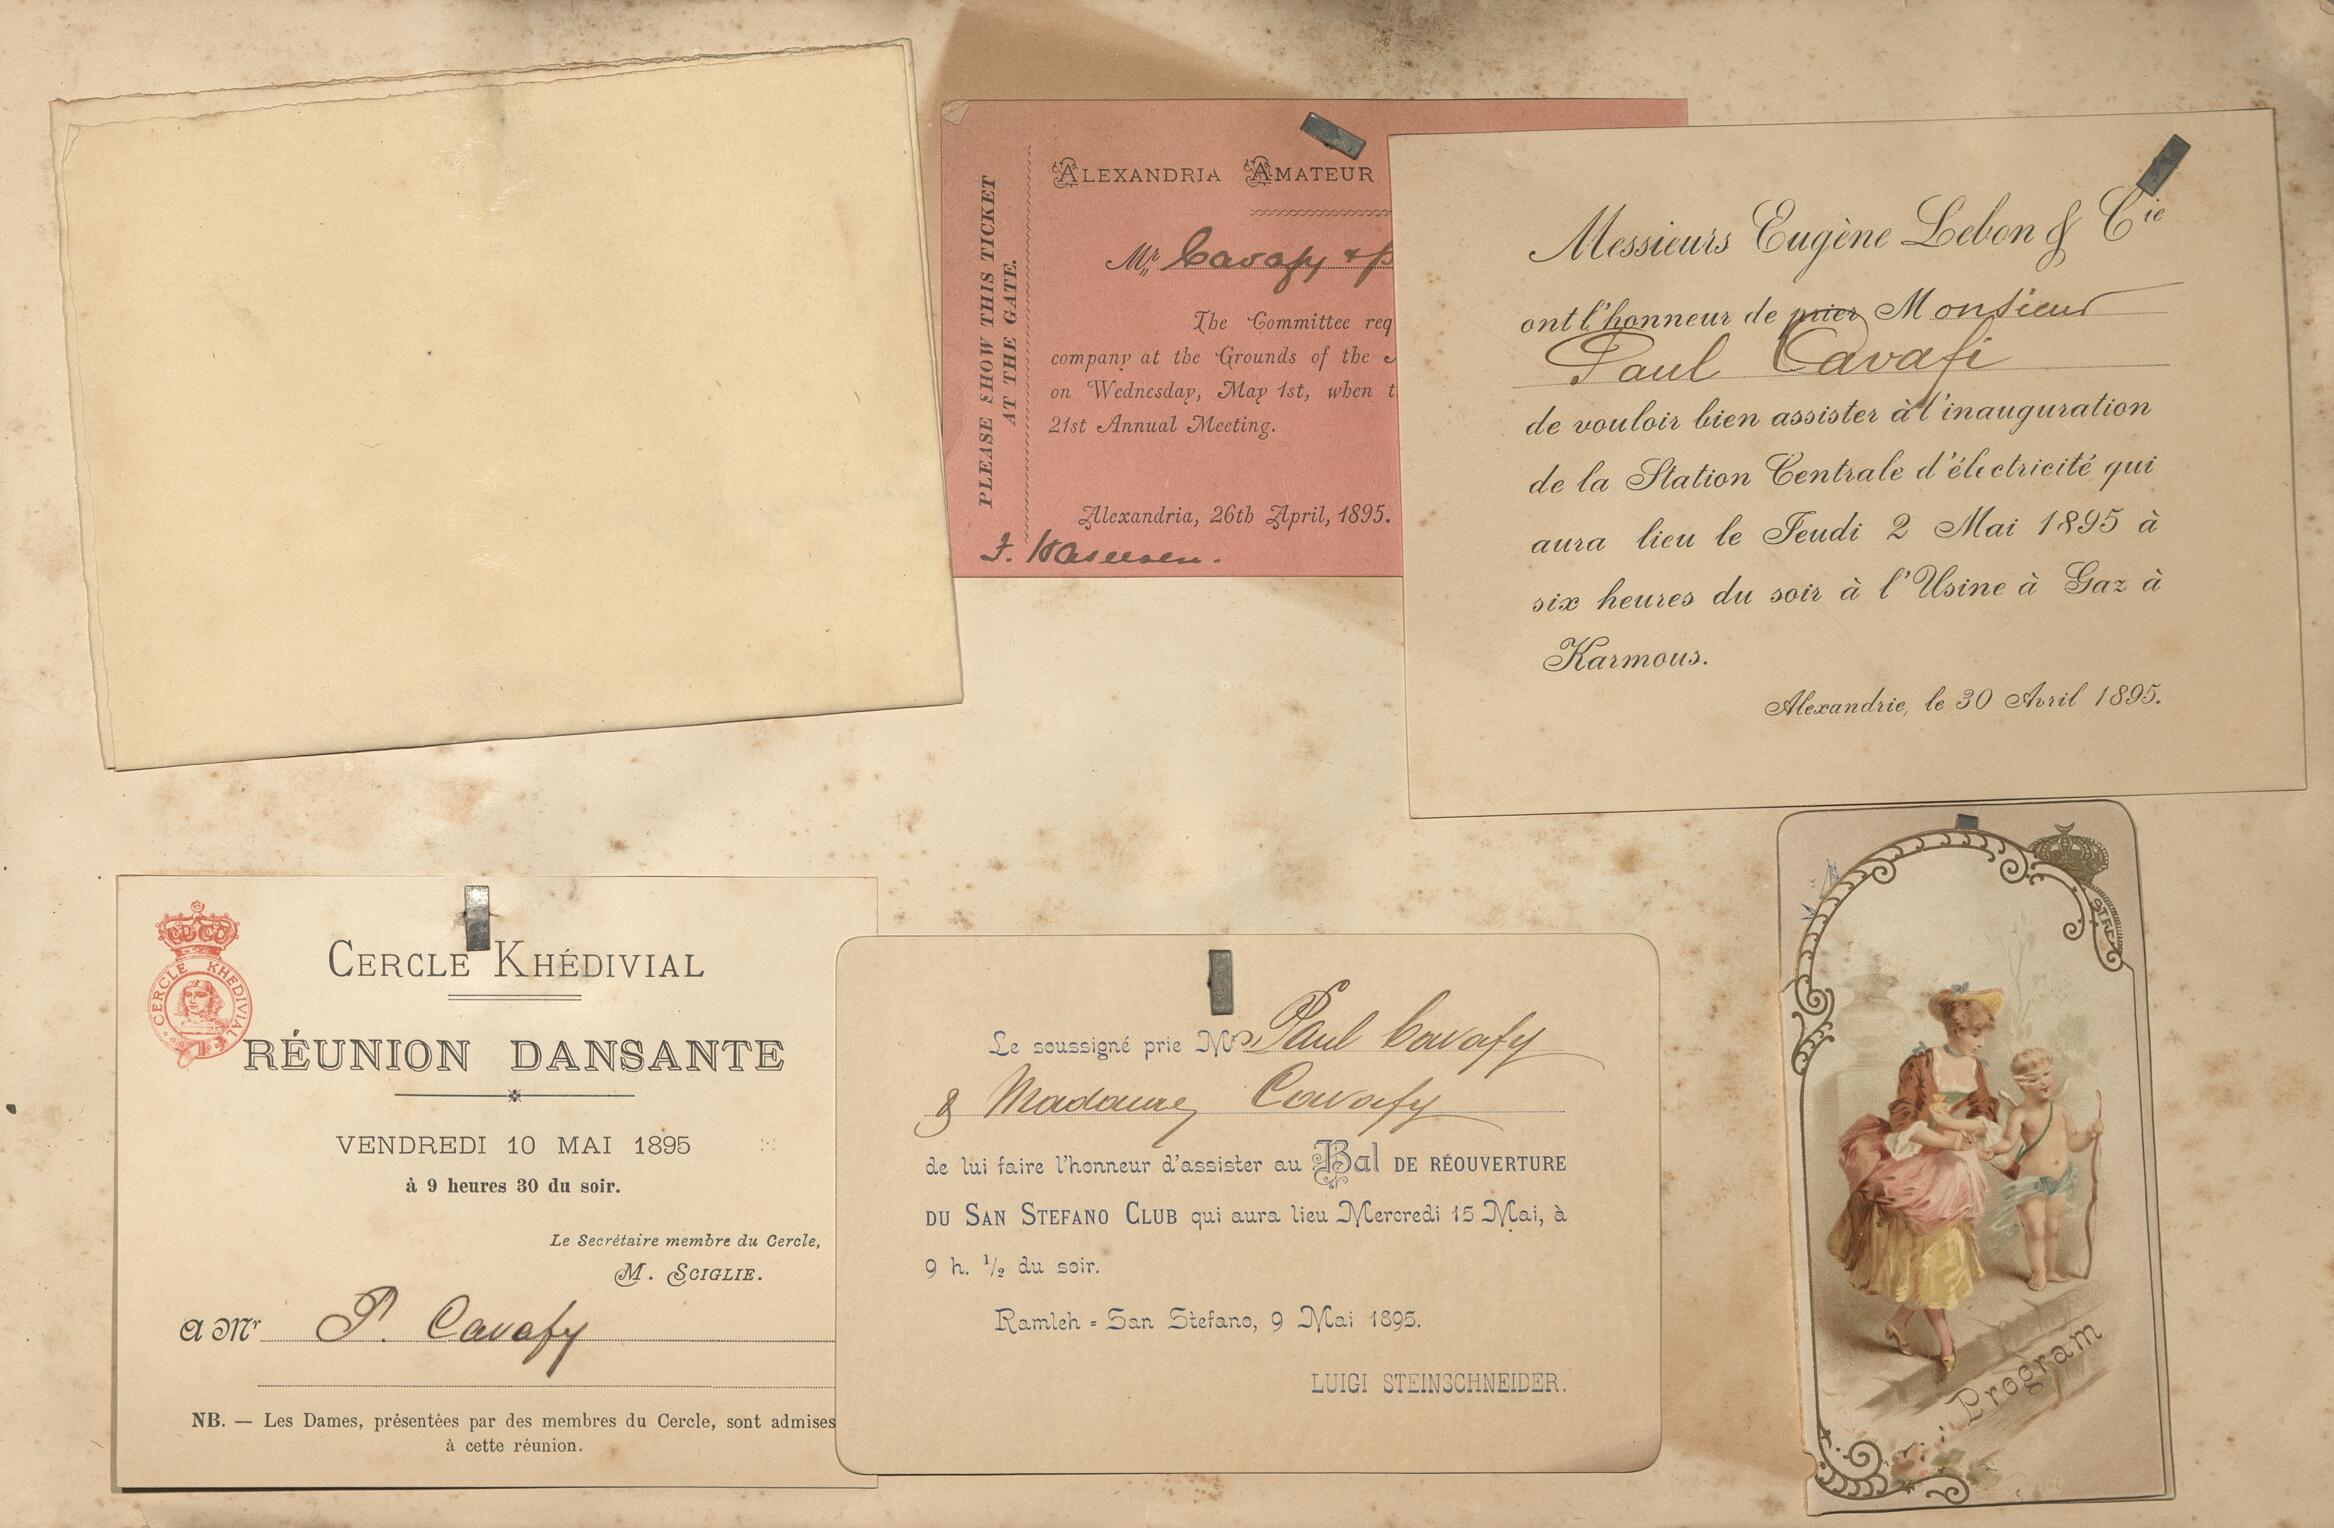 PLEASE SHOW THIS TICKET
AT THE GATE.
ALEXANDRIA AMATEUR
Mr Cavafy &
The Committee req
company at the Grounds of the
on Wednesday, May 1st, when t
21st Annual Meeting.
Alexandria, 26th April, 1895.
Messieurs Eugène Lebon & Cie
ont l'honneur de prier Monsieur
Paul Cavafi
de vouloir bien assister à l'inauguration
de la Station Centrale d'électricité qui
aura lieu le Jeudi 2 Mai 1895 à
six heures du soir à l'Usine à Gaz à
Karmous.
Alexandrie, le 30 Avril 1895.
CERCLE KHEDIVIAL
CERCLE KHÉDIVIAL
RÉUNION DANSANTE
VENDREDI 10 MAI 1895
à 9 heures 30 du soir.
Le Secrétaire membre du Cercle,
M. SCIGLIE.
A Mr P. Cavafy
NB. — Les Dames, présentées par des membres du Cercle, sont admises
à cette réunion.
Le soussigné prie Mr Paul Cavafy
& Madame Cavafy
de lui faire l'honneur d'assister au Bal DE RÉOUVERTURE
DU SAN STEFANO CLUB qui aura lieu Mercredi 15 Mai, à
9 h. 1/2 du soir.
Ramleh = San Stefano, 9 Mai 1895.
LUIGI STEINSCHNEIDER.
Program